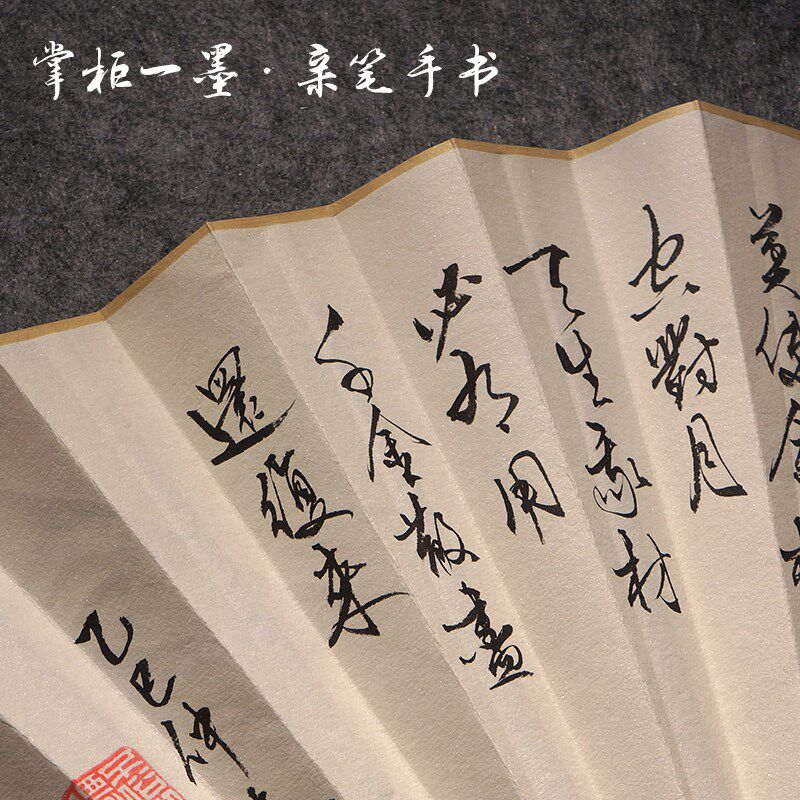 掌柜一墨·亲笔手书
莫使金樽
空對月
天生我材
必有用
千金散盡
還復來
乙巳